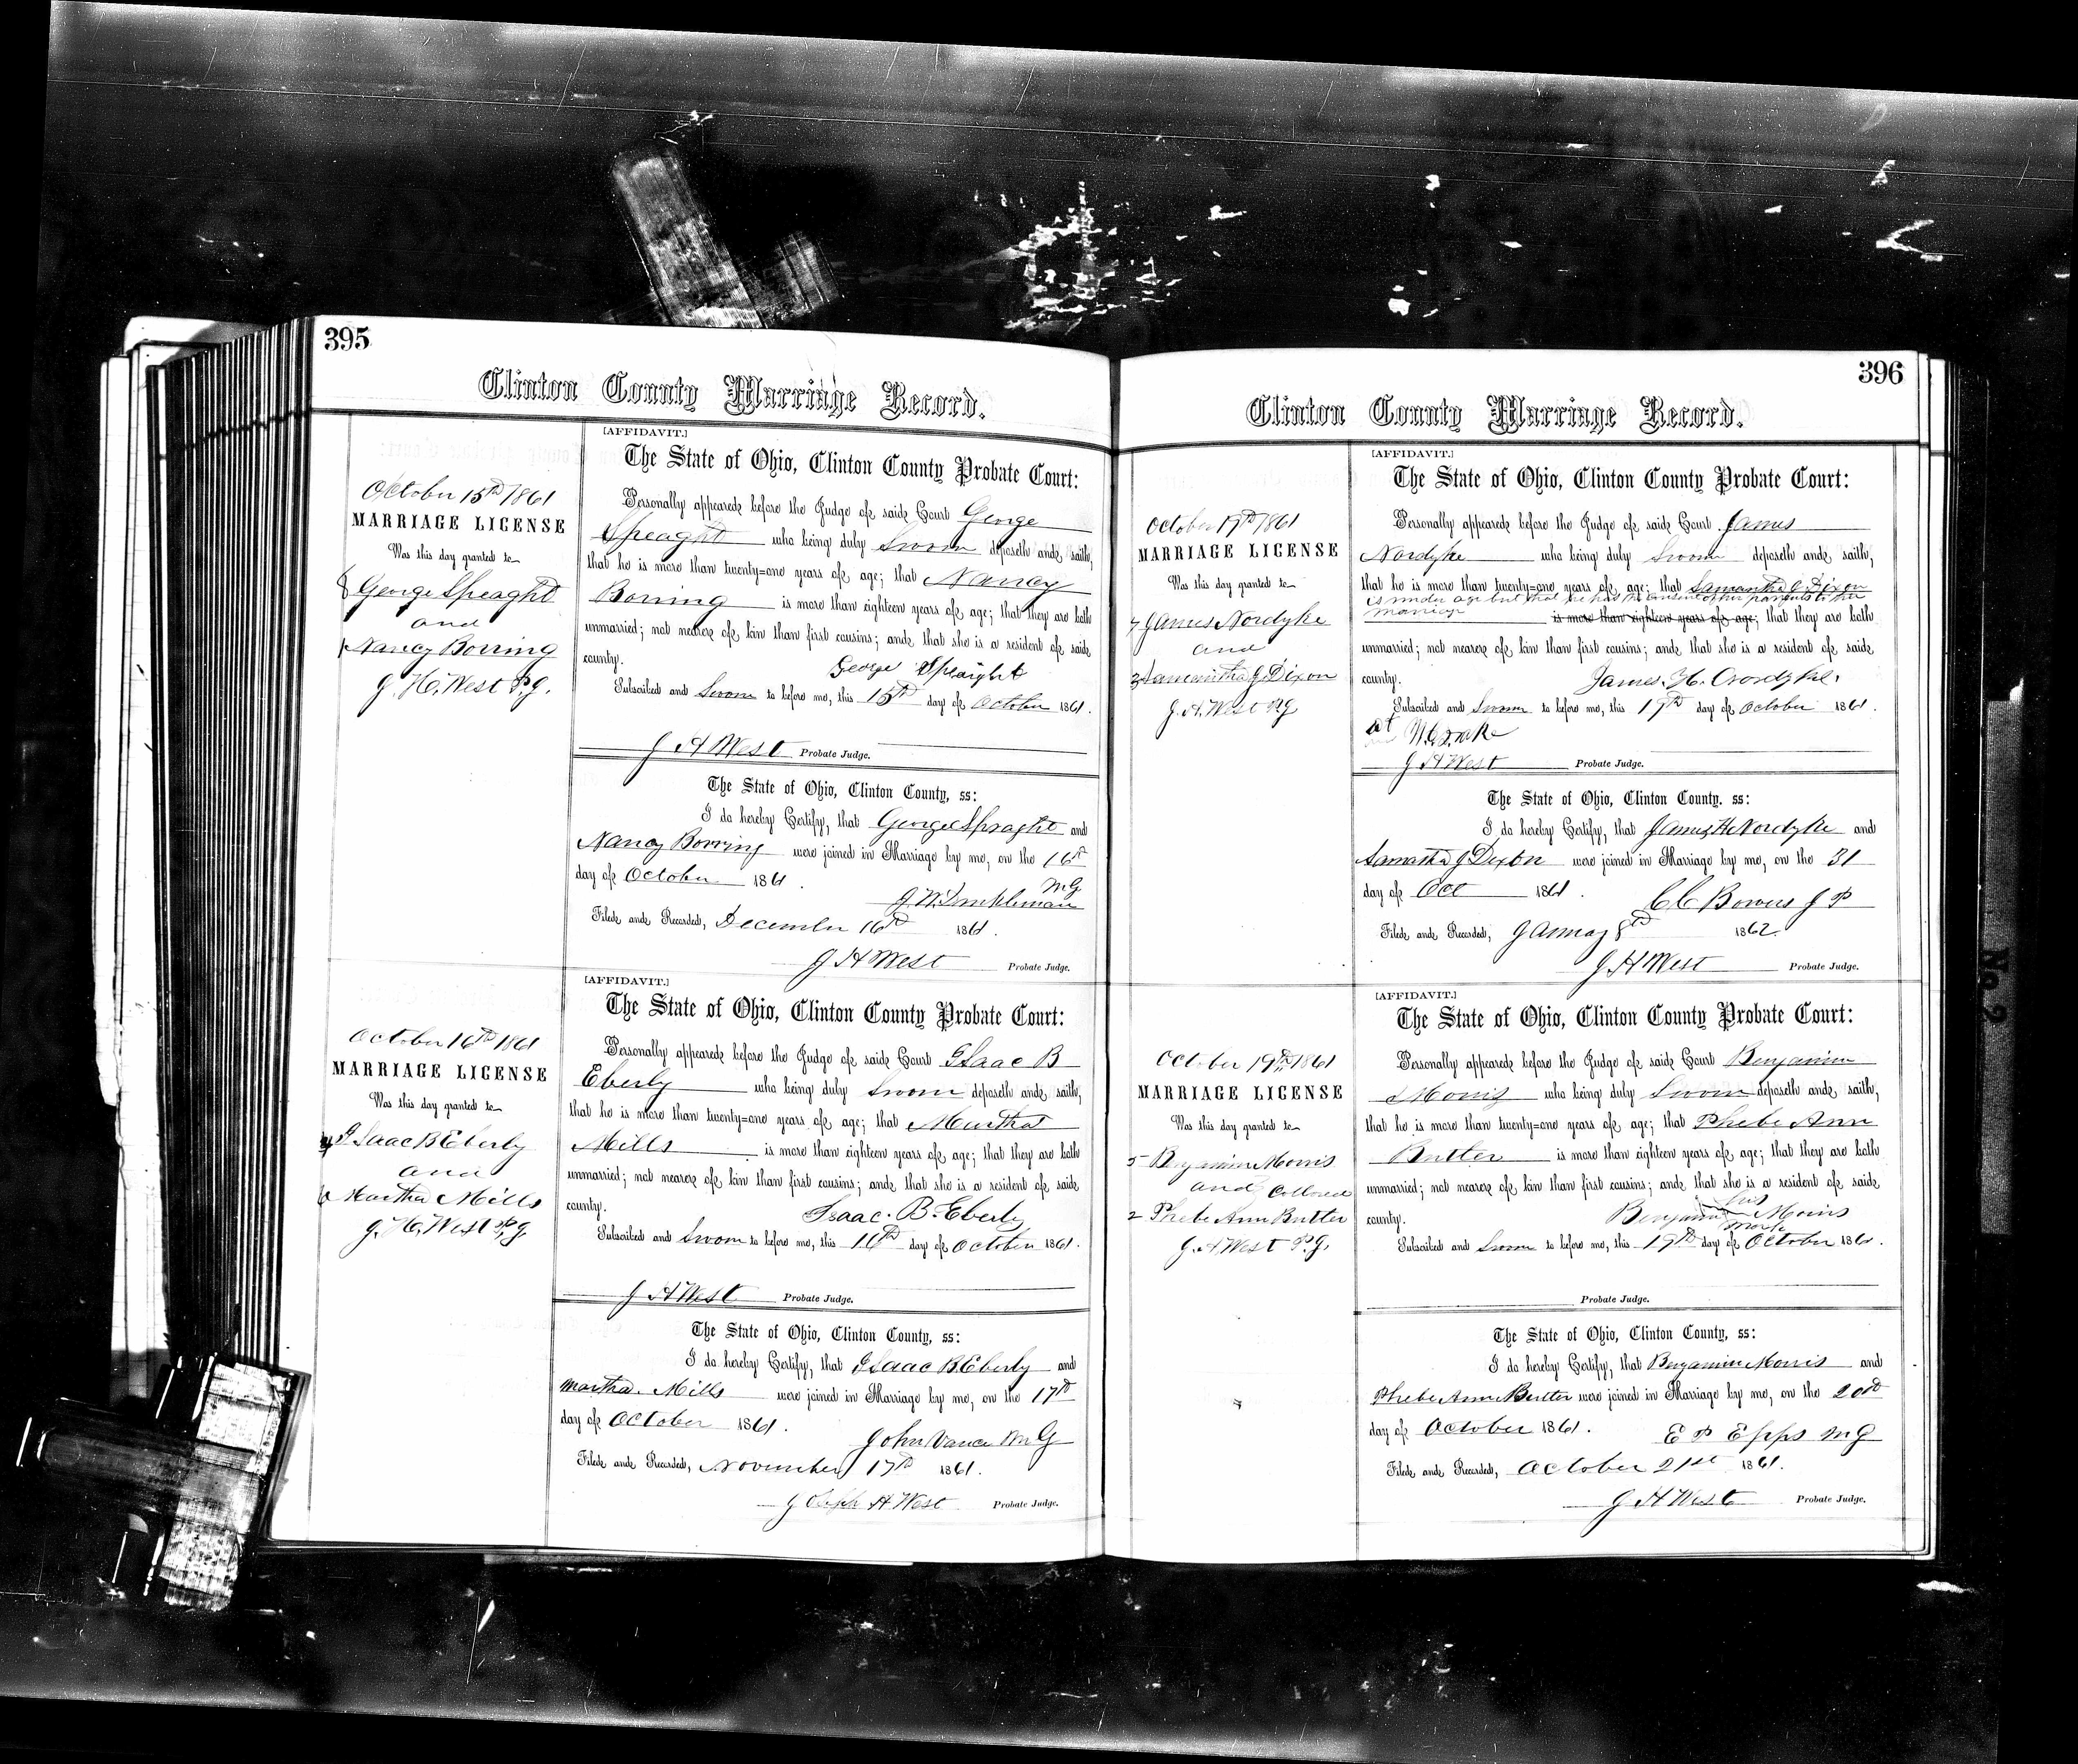 395
Clinton County Marriage Record.
October 15th 1861
MARRIAGE LICENSE
Was this day granted to
George Speaght
and
Nancy Borring
J. H. West P.J.
[AFFIDAVIT.]
The State of Ohio, Clinton County Probate Court:
Personally appeared before the Judge of said Court George
Speaght who being duly Sworn deposeth and saith,
that he is more than twenty=one years of age; that Nancy
Borring is more than eighteen years of age; that they are both
unmarried; not nearer of kin than first cousins; and that she is a resident of said
county.
George Speaight
Subscribed and Sworn to before me, this 15th day of October 1861.
J H West Probate Judge.
The State of Ohio, Clinton County, ss:
I do hereby Certify, that George Speaght and
Nancy Borring were joined in Marriage by me, on the 16th
day of October 1861.
M G
Filed and Recorded, December 16th 1861.
J H West Probate Judge.
October 16th 1861
MARRIAGE LICENSE
Was this day granted to
Isaac B Eberly
and
Martha Mills
J. H. West P.J.
[AFFIDAVIT.]
The State of Ohio, Clinton County Probate Court:
Personally appeared before the Judge of said Court Isaac B
Eberly who being duly Sworn deposeth and saith,
that he is more than twenty=one years of age; that Martha
Mills is more than eighteen years of age; that they are both
unmarried; not nearer of kin than first cousins; and that she is a resident of said
county.
Isaac. B. Eberly
Subscribed and Sworn to before me, this 16th day of October 1861.
J H West Probate Judge.
The State of Ohio, Clinton County, ss:
I do hereby Certify, that Isaac B Eberly and
Martha. Mills were joined in Marriage by me, on the 17th
day of October 1861.
John Vance M G
Filed and Recorded, November 17th 1861.
Joseph H West Probate Judge.
396
Clinton County Marriage Record.
October 17th 1861
MARRIAGE LICENSE
Was this day granted to
James Nordyke
and
Samantha J. Dixon
J. H. West P.J
[AFFIDAVIT.]
The State of Ohio, Clinton County Probate Court:
Personally appeared before the Judge of said Court James
Nordyke who being duly Sworn deposeth and saith,
that he is more than twenty=one years of age; that Samantha J Dixon
is under age but that he has the consent of her parents to her
marriage
is more than eighteen years of age; that they are both
unmarried; not nearer of kin than first cousins; and that she is a resident of said
county.
James. H.
Subscribed and Sworn to before me, this 17th day of October 1861.
J H West Probate Judge.
The State of Ohio, Clinton County. ss:
I do hereby Certify, that James H Nordyke and
Samantha J Dixon were joined in Marriage by me, on the 31
day of Oct 1861.
C C Bowers J P
Filed and Recorded, January 8th 1862.
J H West Probate Judge.
October 19th 1861
MARRIAGE LICENSE
Was this day granted to
Benjamin Morris
and Collored
Phebe Ann Butler
J. H. West P.J.
[AFFIDAVIT.]
The State of Ohio, Clinton County Probate Court:
Personally appeared before the Judge of said Court Benjamin
Morris who being duly Sworn deposeth and saith,
that he is more than twenty=one years of age; that Phebe Ann
Butler is more than eighteen years of age; that they are both
unmarried; not nearer of kin than first cousins; and that she is a resident of said
county.
his
Benjamin Morris
mark
Subscribed and Sworn to before me, this 19th day of October 1861.
Probate Judge.
The State of Ohio, Clinton County, ss:
I do hereby Certify, that Benjamin Morris and
Phebe Ann Butler were joined in Marriage by me, on the 20th
day of October 1861.
E P Epps M G
Filed and Recorded, October 21st 1861.
J H West Probate Judge.
No 2